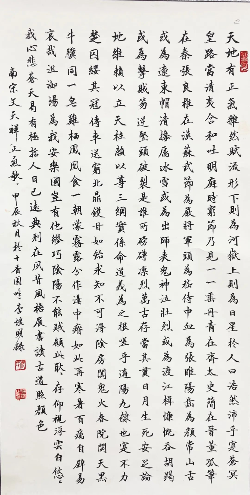 天地有正氣雜然賦流形下則為河嶽上則為日星於人曰浩然沛乎塞蒼冥
皇路當清夷含和吐明庭時窮節乃見一一垂丹青在齊太史簡在晉董狐筆
在秦張良椎在漢蘇武節為嚴將軍頭為嵇侍中血為張睢陽齒為顏常山舌
或為遼東帽清操厲冰雪或為出師表鬼神泣壯烈或為渡江楫慷慨吞胡羯
或為擊賊笏逆豎頭破裂是氣所磅礴凜烈萬古存當其貫日月生死安足論
地維賴以立天柱賴以尊三綱實係命道義為之根嗟予遘陽九隸也實不力
楚囚纓其冠傳車送窮北鼎鑊甘如飴求之不可得陰房闃鬼火春院閟天黑
牛驥同一皂雞棲鳳凰食一朝蒙霧露分作溝中瘠如此再寒暑百癘自辟易
哀哉沮洳場為我安樂國豈有他繆巧陰陽不能賊顧此耿耿存仰視浮雲白悠悠
我心悲蒼天曷有極哲人日已遠典刑在夙昔風檐展書讀古道照顏色
南宋文天祥正氣歌 甲辰秋月於十香園 李 明錄